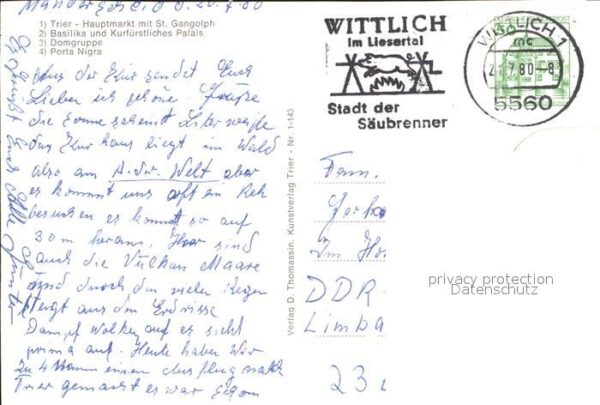 Manderscheid d. 20.7.80
1) Trier - Hauptmarkt mit St. Gangolph
2) Basilika und Kurfürstliches Palais
3) Domgruppe
4) Porta Nigra
Aus der Kur sendet Euch
Lieben ich schöne Grüße
die Sonne scheint
das Kurhaus liegt im Wald
also am A. der Welt aber
es kommt uns oft ein Reh
besuchen es kommt so auf
30 m heran, Hier sind
auch die Vulkan Maare
und durch den vielen Regen
steigt aus den Erdrisse
Dampf Wolken auf es sieht
prima aus. Heute haben Wir
zu 4 Mann einen Ausflug nach
Trier gemacht es war schön
Es grüßt Euch Alle Günter
Verlag D. Thomassin, Kunstverlag Trier - Nr. 1-143
WITTLICH
im Liesertal
Stadt der
Säubrenner
WITTLICH 1
mc
7.80-8
5560
DEUTSCHE BUNDESPOST
Fam.
Im
DDR
Limba
23
privacy protection
Datenschutz